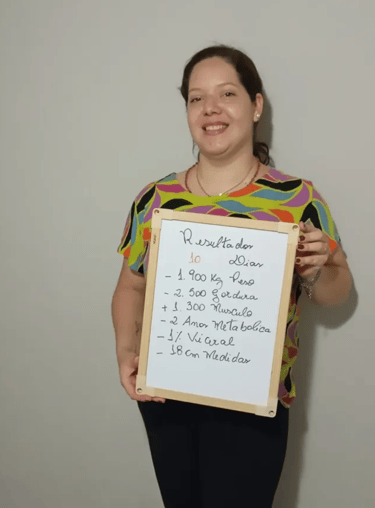 Resultados
10 Dias
- 1.900 Kg Peso
- 2.500 Gordura
+ 1.300 Musculo
- 2 Anos Metabolica
- 1% Viceral
- 18 cm Medidas